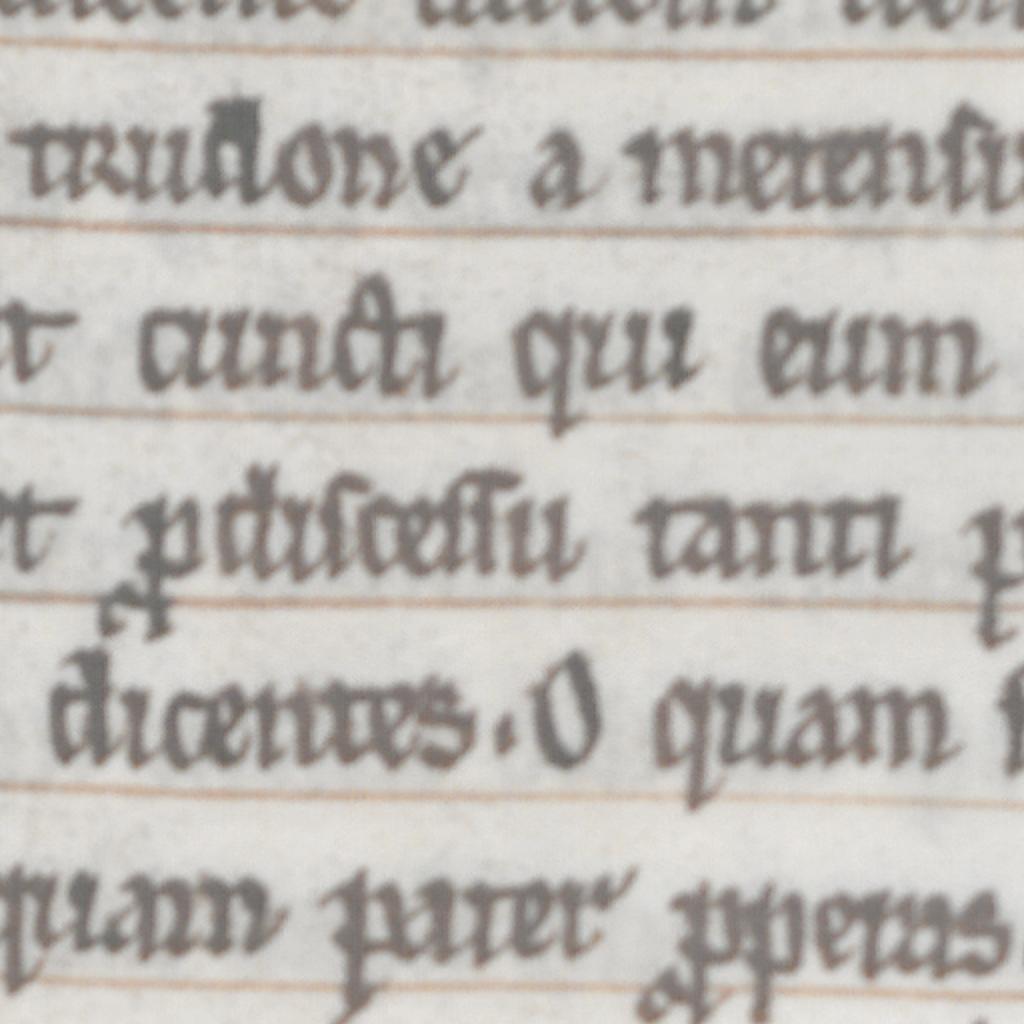 trudone a merensi
t cuncti qui eum
et ꝓ discessu tanti p
dicentes. O quam
quam pater ꝓperas